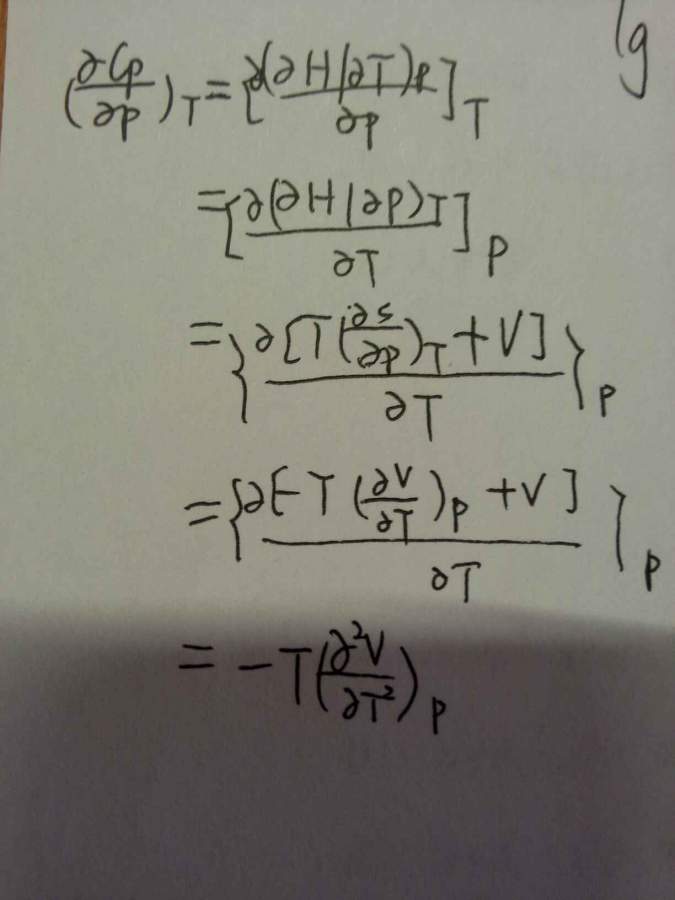 lg
(∂Cp/∂p)T = [∂(∂H/∂T)P/∂p]T
= [∂(∂H/∂P)T/∂T]P
= {∂[T(∂S/∂P)T + V]/∂T}P
= {∂[-T(∂V/∂T)P + V]/∂T}P
= -T(∂²V/∂T²)P